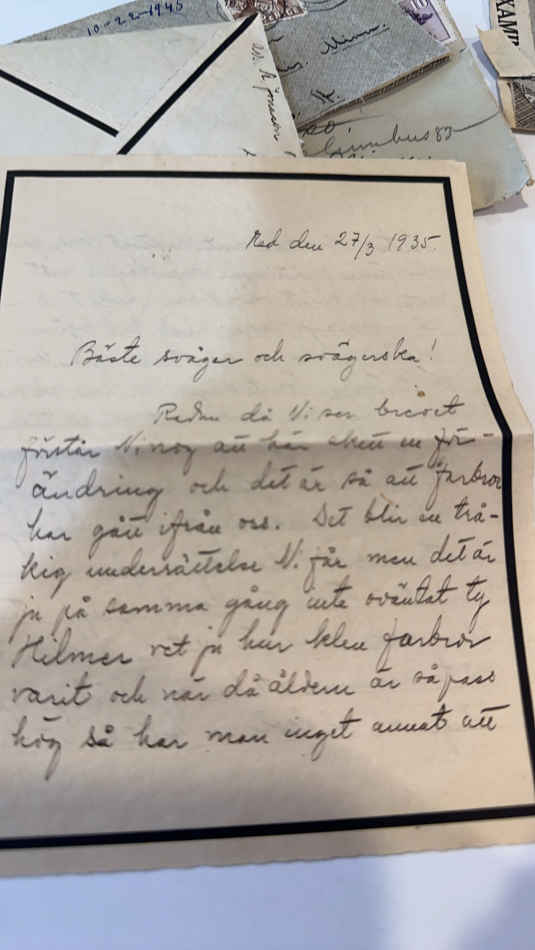 10-22-1945
Minn.
Columbus 83
EXAMI
Red den 27/3 1935.
Bäste svåger och svägerska!
Redan då Ni ser brevet
förstår Ni nog att här skett en för-
ändring och det är så att farbror
har gått ifrån oss. Det blir en trå-
kig underrättelse Ni får men det är
ju på samma gång inte oväntat ty
Hilmer vet ju hur klen farbror
varit och när då åldern är så pass
hög så har man inget annat att